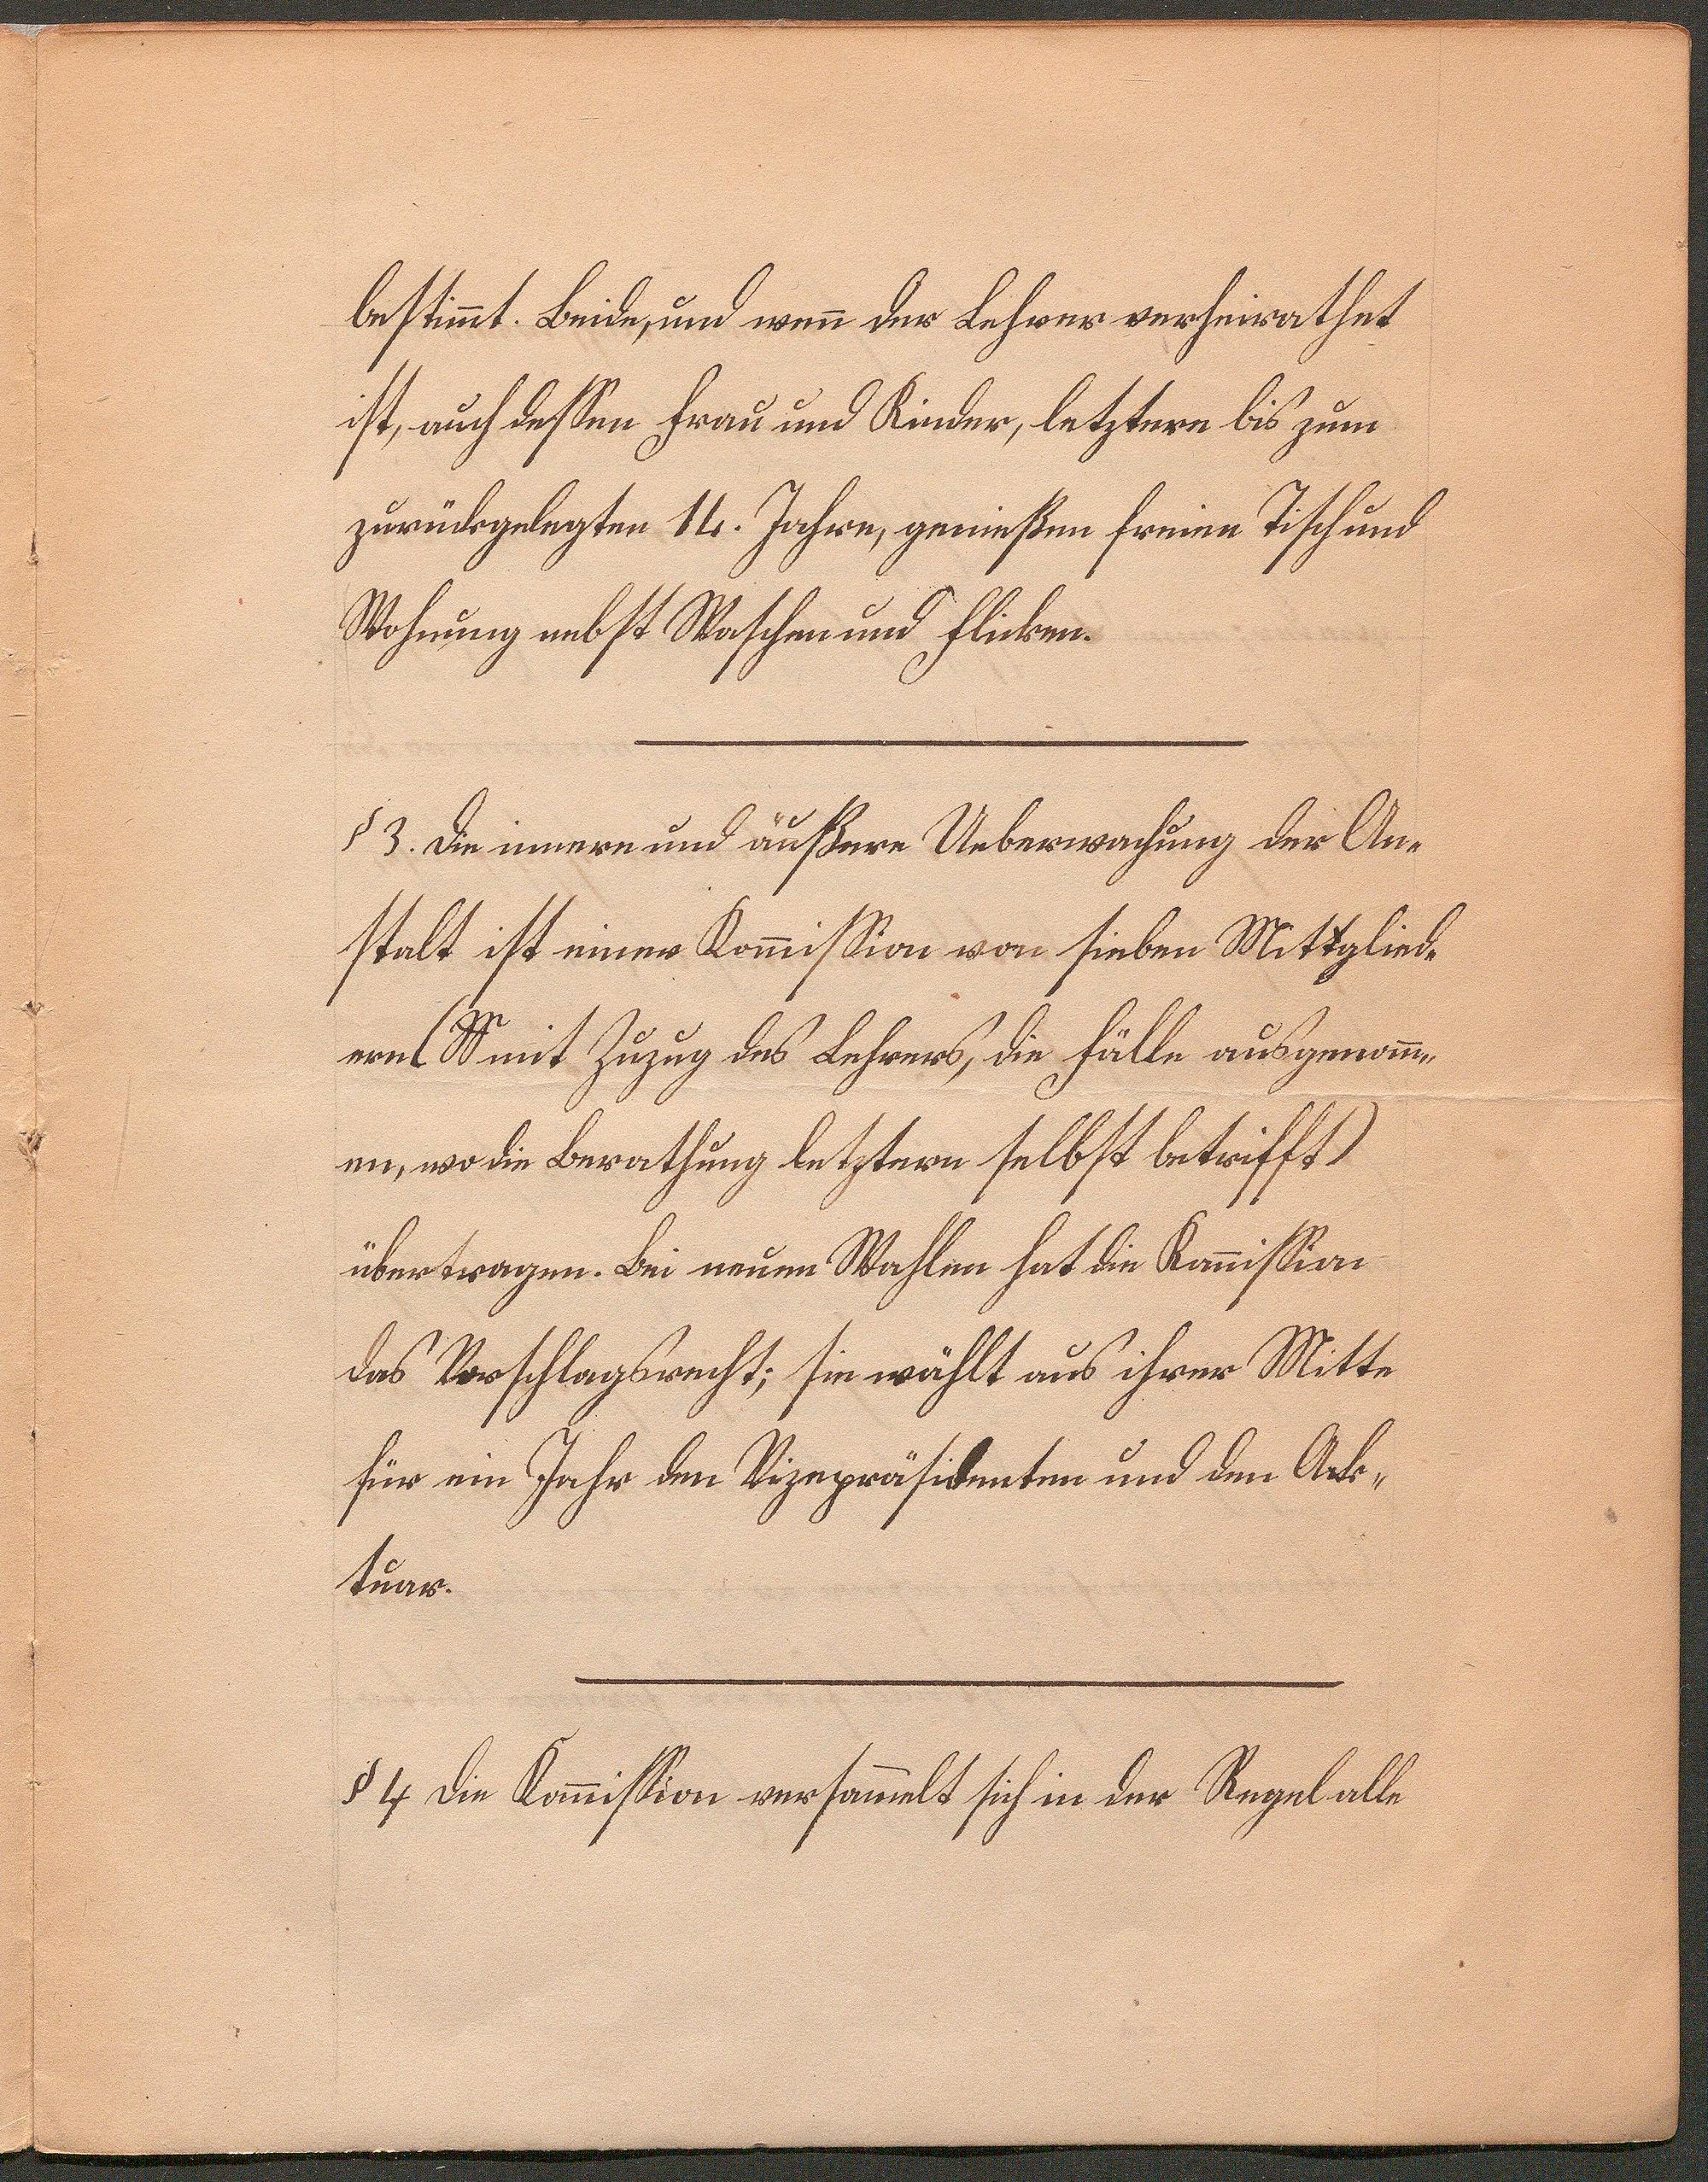 bestim̄t. Beide, und wen̄ der Lehrer verheirathet
ist, auch dessen Frau und Kinder, letztere bis zum
zurückgelegten 14. Jahre, genießen freien Tisch und
Wohnung nebst Waschen und Flicken.
§ 3. Die innere und äußere Ueberwachung der An-
stalt ist einer Kom̄ission von sieben Mittglied-
ern (mit Zuzug des Lehrers, die Fälle ausgenom̄-
en, wo die Berathung letztern selbst betrifft)
übertragen. Bei neuen Wahlen hat die Kom̄ission
das Vorschlagsrecht; sie wählt aus ihrer Mitte
für ein Jahr den Vizepräsidenten und den Ak-
tuar.
§ 4 Die Kom̄ission versam̄elt sich in der Regel alle